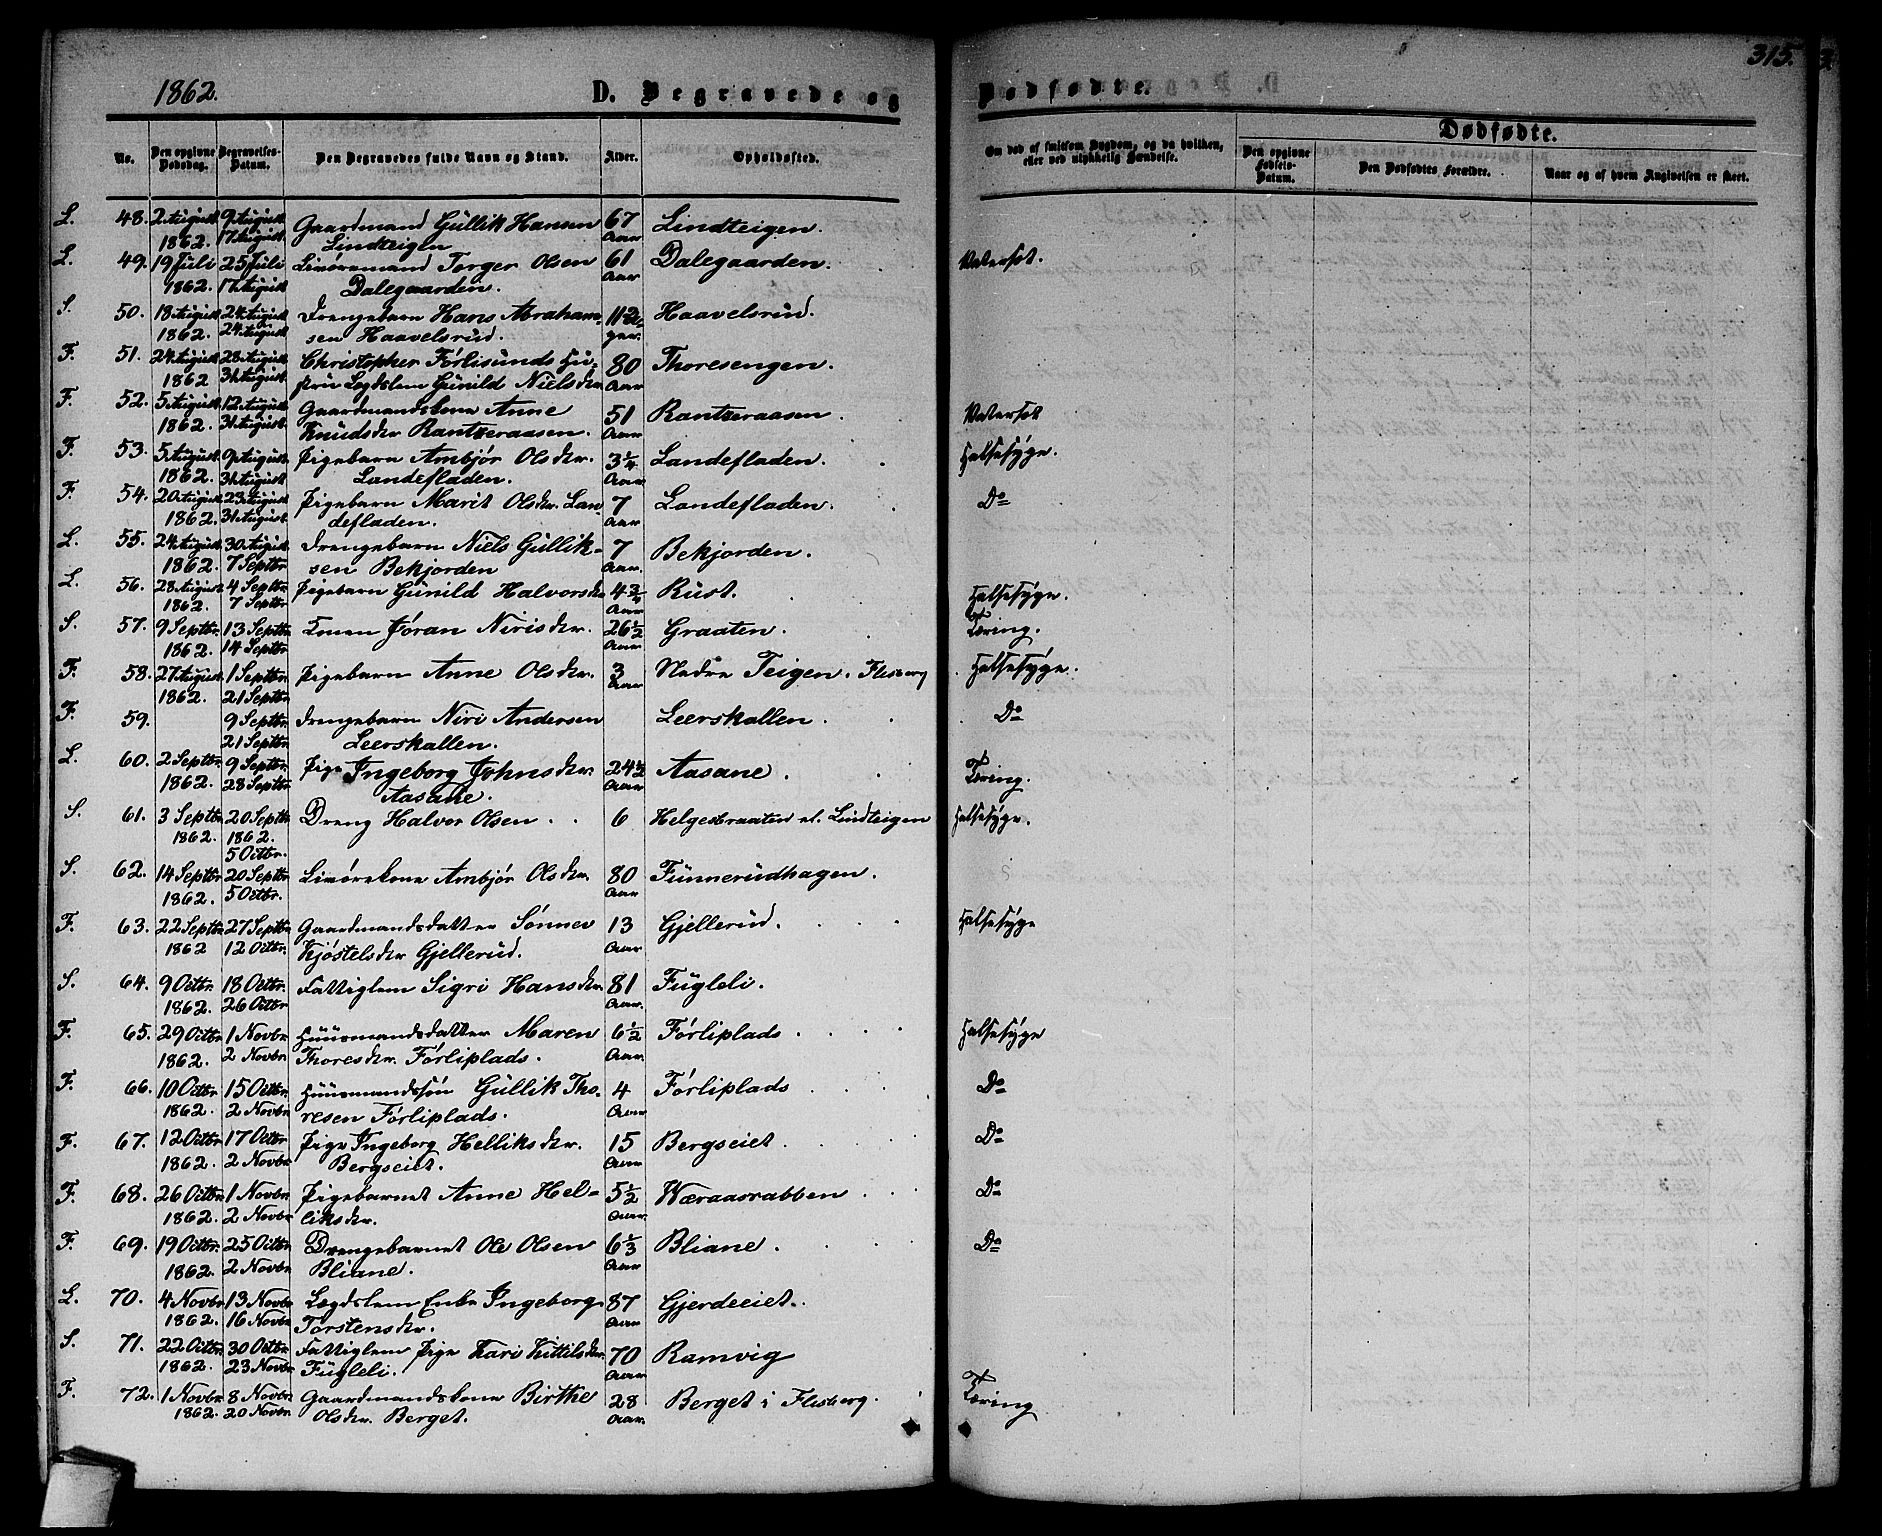 1862.
D. Begravede og
Dødfødte.
315.
No.
Den opgivne Dødsdag.
Begravelses-Datum.
Den Begravedes fulde Navn og Stand.
Alder.
Opholdssted.
Om død af smitsom Sygdom, og da hvilken, eller ved ulykkelig Hændelse.
Dødfødte.
Den opgivne Fødsels-Datum.
Den Dødfødtes Forældre.
Naar og af hvem Angivelsen er skeet.
L. 48. 2 August 9 August Gaardmand Gullik Hansen 67 Lindteigen.
1862. 17 August Lindteigen Aar
L. 49. 19 Juli 25 Juli Torger Olsen 61 Dalegaarden. Vatersot.
1862. 17 August Dalegaarden. Aar
S. 50. 18 August 24 August Drengebarn Hans Abraham- 11 Haavelsrud.
1862. 24 August sen Haavelsrud.
F. 51. 24 August 28 August Christopher Förlisunds Hu- 80 Thoresengen.
1862 31 August stru Legdslem Gunild Nielsdtr. Aar
F. 52. 5 August 12 August Gaardmandskone Anne 51 Rantzeraasen. Vatersot
1862. 31 August Knudsdtr Rantzeraasen. Aar
F. 53. 5 August 9 August Pigebarn Ambjør Olsdtr. 3¼ Landefladen. Halsesyge.
1862. 31 August Landefladen. Aar
F. 54. 20 August 23 August Pigebarn Marit Olsdtr. Lan- 7 Landefladen. Do
1862. 31 August defladen. Aar
L. 55. 24 August 30 August Drengebarn Niels Gullik- 7 Bekjorden.
1862. 7 Septbr sen Bekjorden Aar.
L. 56. 28 August 4 Septbr Pigebarn Gunild Halvorsdtr 4¾ Rust. Halsesyge.
1862. 7 Septbr Aar
S. 57. 9 Septbr. 13 Septbr. Jøran Nirisdtr. 26½ Graaten. Tæring.
1862. 14 Septbr Aar
F. 58. 27 August 1 Septbr. Pigebarn Anne Olsdtr. 3 Nedre Teigen. Flesberg Halsesyge.
1862. 21 Septbr Aar
F. 59. 9 Septbr. Drengebarn Niri Andersen Leerskallen. Do
21 Septbr. Leerskallen.
L. 60. 2 Septbr. 9 Septbr. Pige Ingeborg Johnsdtr. 24½ Aasane. Tæring.
1862. 28 Septbr. Aasane. Aar
S. 61. 3 Septbr 20 Septbr Dreng Halvor Olsen 6 Helgesbraaten el. Lindteigen Halsesyge.
1862. 1862.
5 Octbr.
S. 62. 14 Septbr 20 Septbr Ambjør Olsdtr. 80 Funnerudhagen.
1862. 5 Octbr. Aar
F. 63. 22 Septbr 27 Septbr Gaardmandsdatter Sønnev 13 Gjellerud. Halsesyge
1862 12 Octbr. Kjøstelsdtr Gjellerud. Aar
S. 64. 9 Octbr. 18 Octbr. Fattiglem Sigri Hansdtr. 81 Fugleli.
1862. 26 Octbr Aar.
F. 65. 29 Octbr 1 Novbr. Huusmandsdatter Maren 6½ Förliplads Halsesyge
1862. 2 Novbr. Thoresdtr. Förliplads. Aar.
F. 66. 10 Octbr 15 Octbr. Huusmandssøn Gullik Tho- 4 Förliplads Do
1862. 2 Novbr. resen Förliplads. Aar.
F. 67. 12 Octbr 17 Octbr Pige Ingeborg Helliksdtr. 15 Bergseiet. Do
1862. 2 Novbr. Bergseiet. Aar
F. 68. 26 Octbr 1 Novbr. Pigebarnet Anne Hel- 5½ Wæraasrabben Do
1862. 2 Novbr. liksdtr. Aar.
F. 69. 19 Octbr. 25 Octbr. Drengebarnet Ole Olsen 6⅓ Bliane. Do
1862. 2 Novbr. Bliane. Aar
L. 70. 4 Novbr. 13 Novbr. Lægdslem Enke Ingeborg 87 Gjerdeeiet.
1862. 16 Novbr. Torstensdtr. Aar
S. 71. 22 Octbr. 30 Octbr. Fattiglem Pige Kari Kittilsdtr. 70 Ramvig
1862. 23 Novbr. Fugleli. Aar
F. 72. 1 Novbr. 8 Novbr. Gaardmandskone Birthe 28 Berget i Flesberg. Tæring
1862. 20 Novbr. Olsdtr. Berget. Aar.